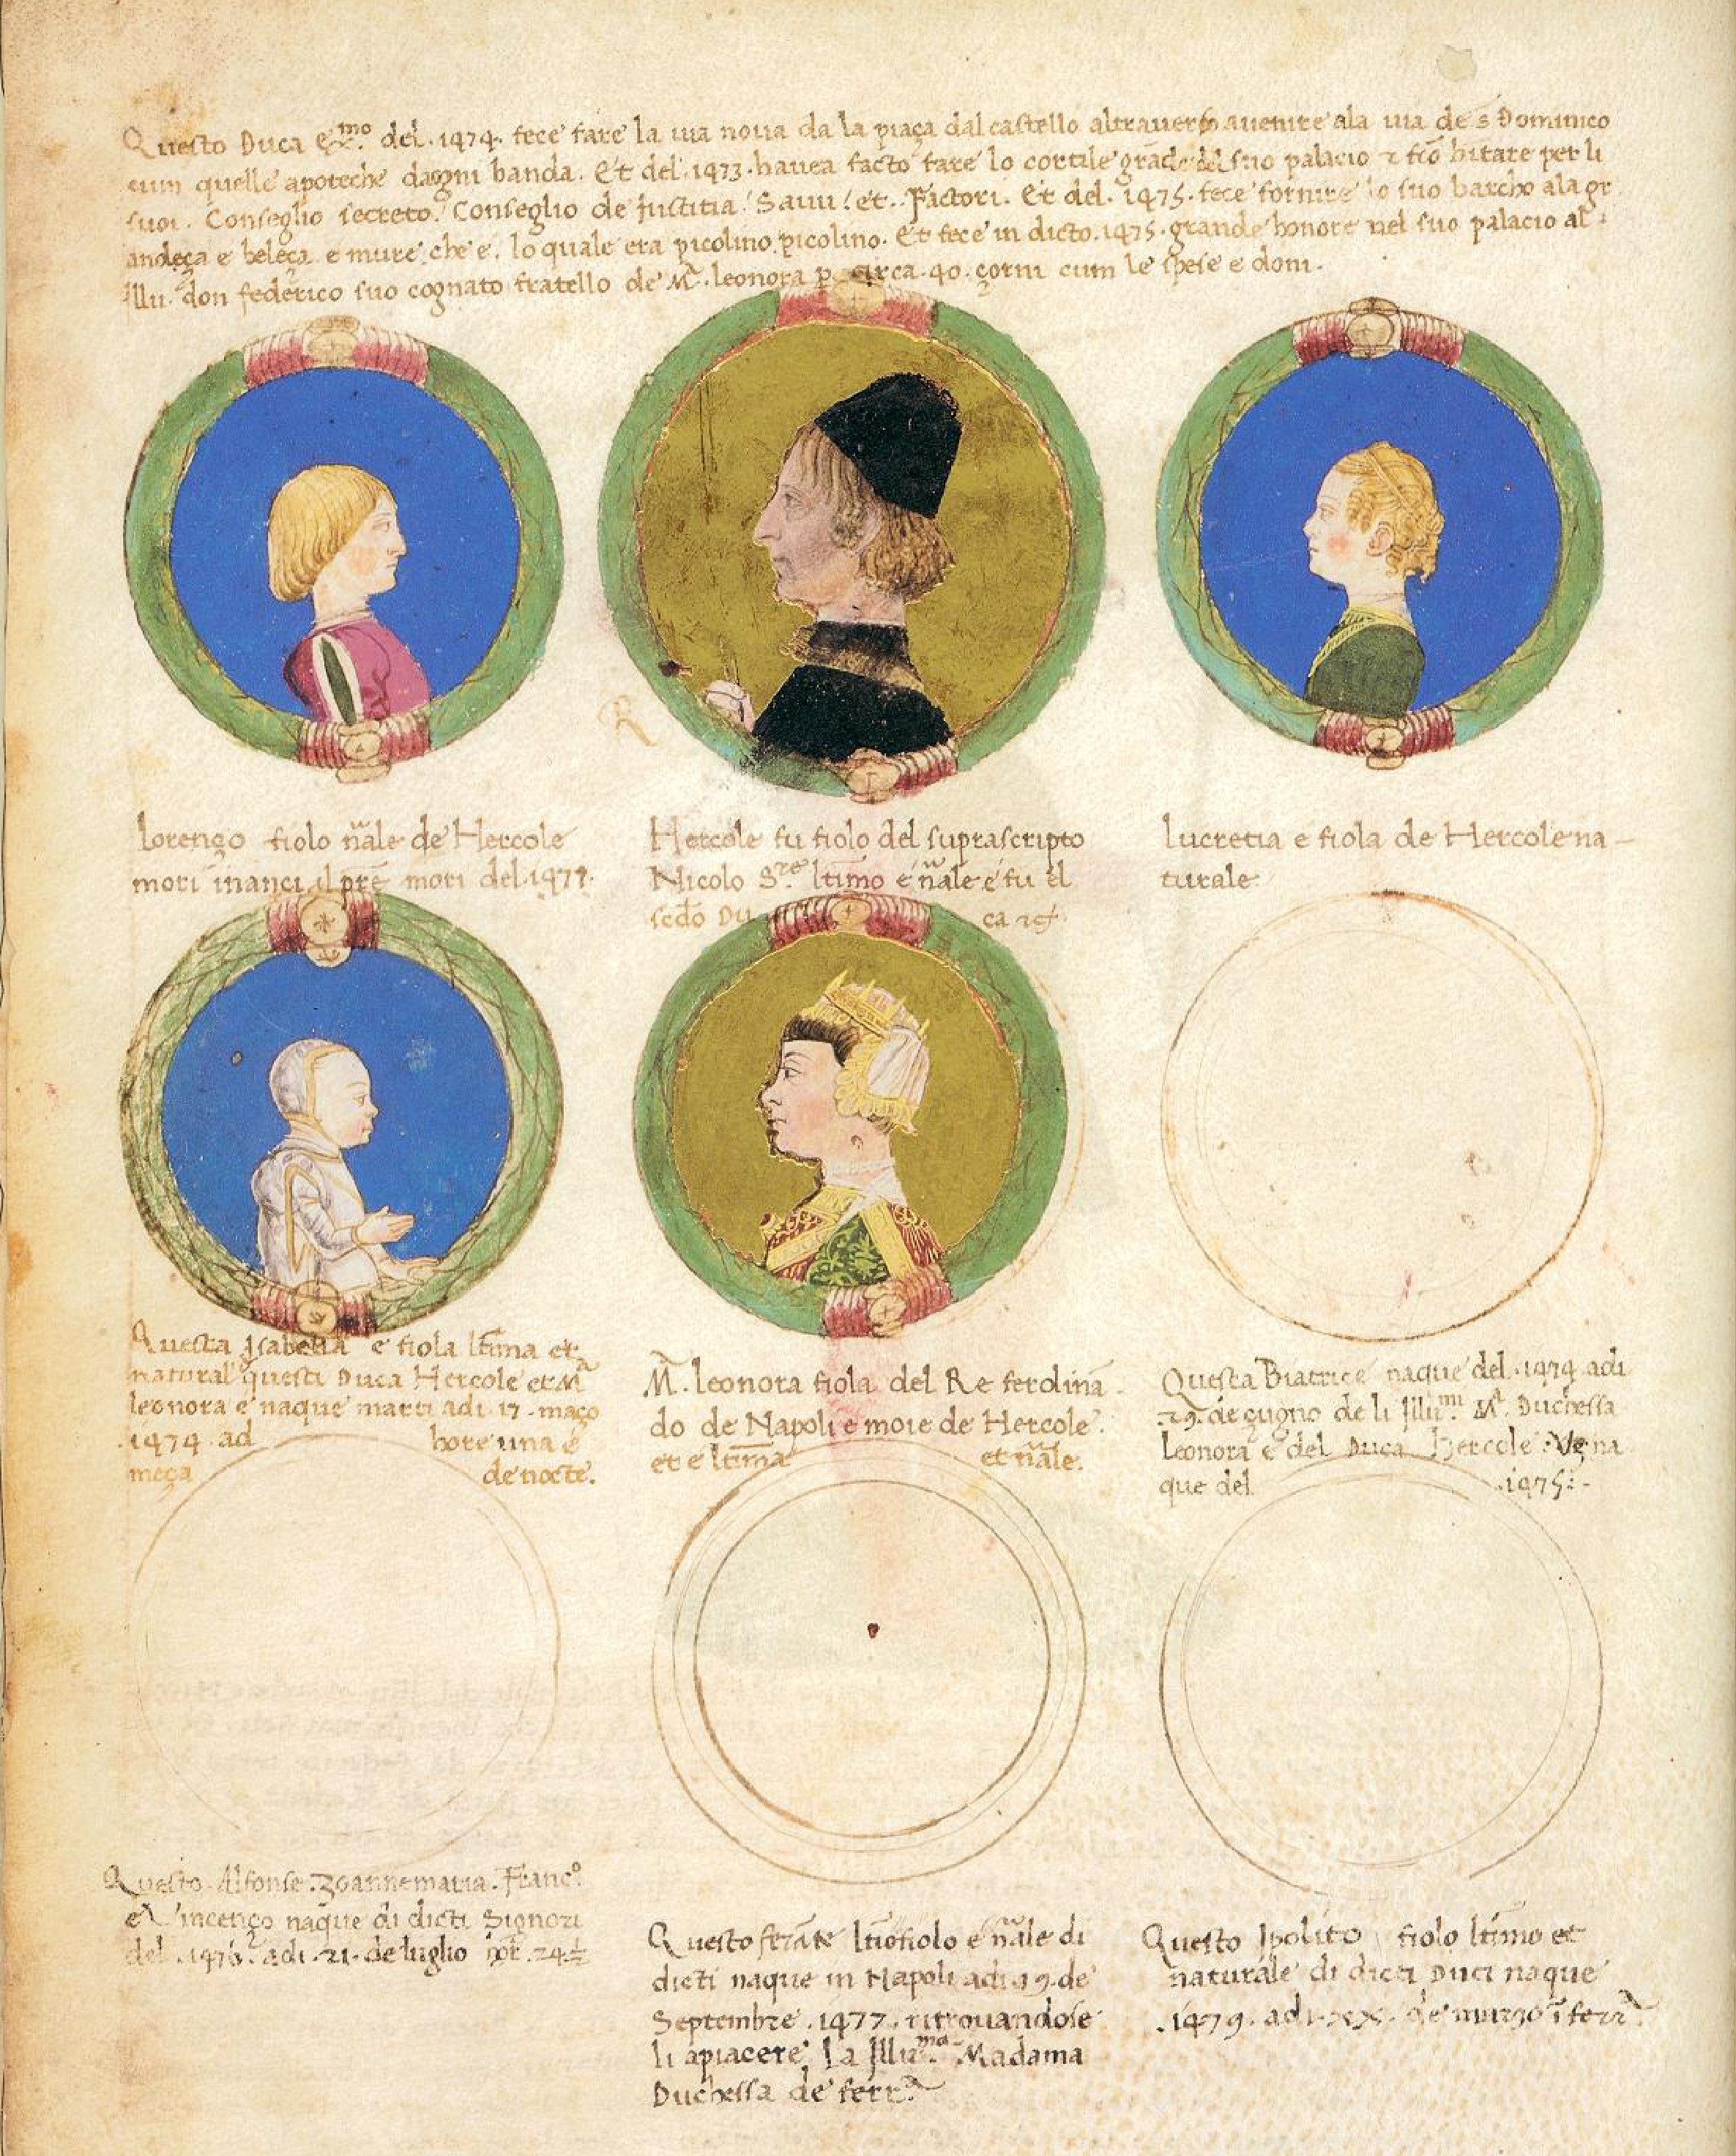 Questo Duca ex.mo del .1474. fece fare la via nova da la piaça dal castello altraverso avenire ala via de s Dominico
cum quelle apoteche dagni banda. Et del .1473. havea facto fare lo cortile grāde del suo palacio per li
suoi. Conseglio secreto. Conseglio de Justitia. Savii. et. Factori. Et del. 1475. fece fornire lo suo barcho ala gr
andeça e beleça e mure che e. lo quale era picolino picolino. Et fece in dicto .1475. grande honore nel suo palacio al
Illu. don federico suo cognato fratello de Mᵃ. leonora p circa .40. çorni cum le spese e doni.
Lorenço fiolo nāle de Hercole
mori inanci il prē mori del .147
Hercole fu fiolo del suprascripto
Nicolo Sʳᵉ ltīmo e nāle e fu el
secdo Duca
Lucretia e fiola de Hercole na-
turale
Questa Isabella e fiola ltīma et
natural questi Duca Hercole et Mᵃ
leonora e naque marti adi 17. maço
.1474. ad hore una e
meça de nocte.
Mᵃ. leonora fiola del Re ferdinā
do de Napoli e moie de Hercole.
et e ltīma et nāle.
Questa Biatrice naque del .1474. adi
29. de çugno de li Illu.mi Mᵃ. Duchessa
Leonora e del Duca Hercole. na
que del .1475:-
Questo Alfonse. Zoannemaria. Franc.º
e Vincenço naque di dicti Signori
del .1476. adi .21. de luglio
Questo ferāte ltīo fiolo e nāle di
dicti naque in Napoli adi 19. de
Septembre .1477. ritrovandose
li apiacere La Illu.ma Madama
Duchessa de ferrᵃ
Questo Ipolito fiolo ltīmo et
naturale di dicti Duci naque
.1479. adi. xx. de marzo ī ferrᵃ